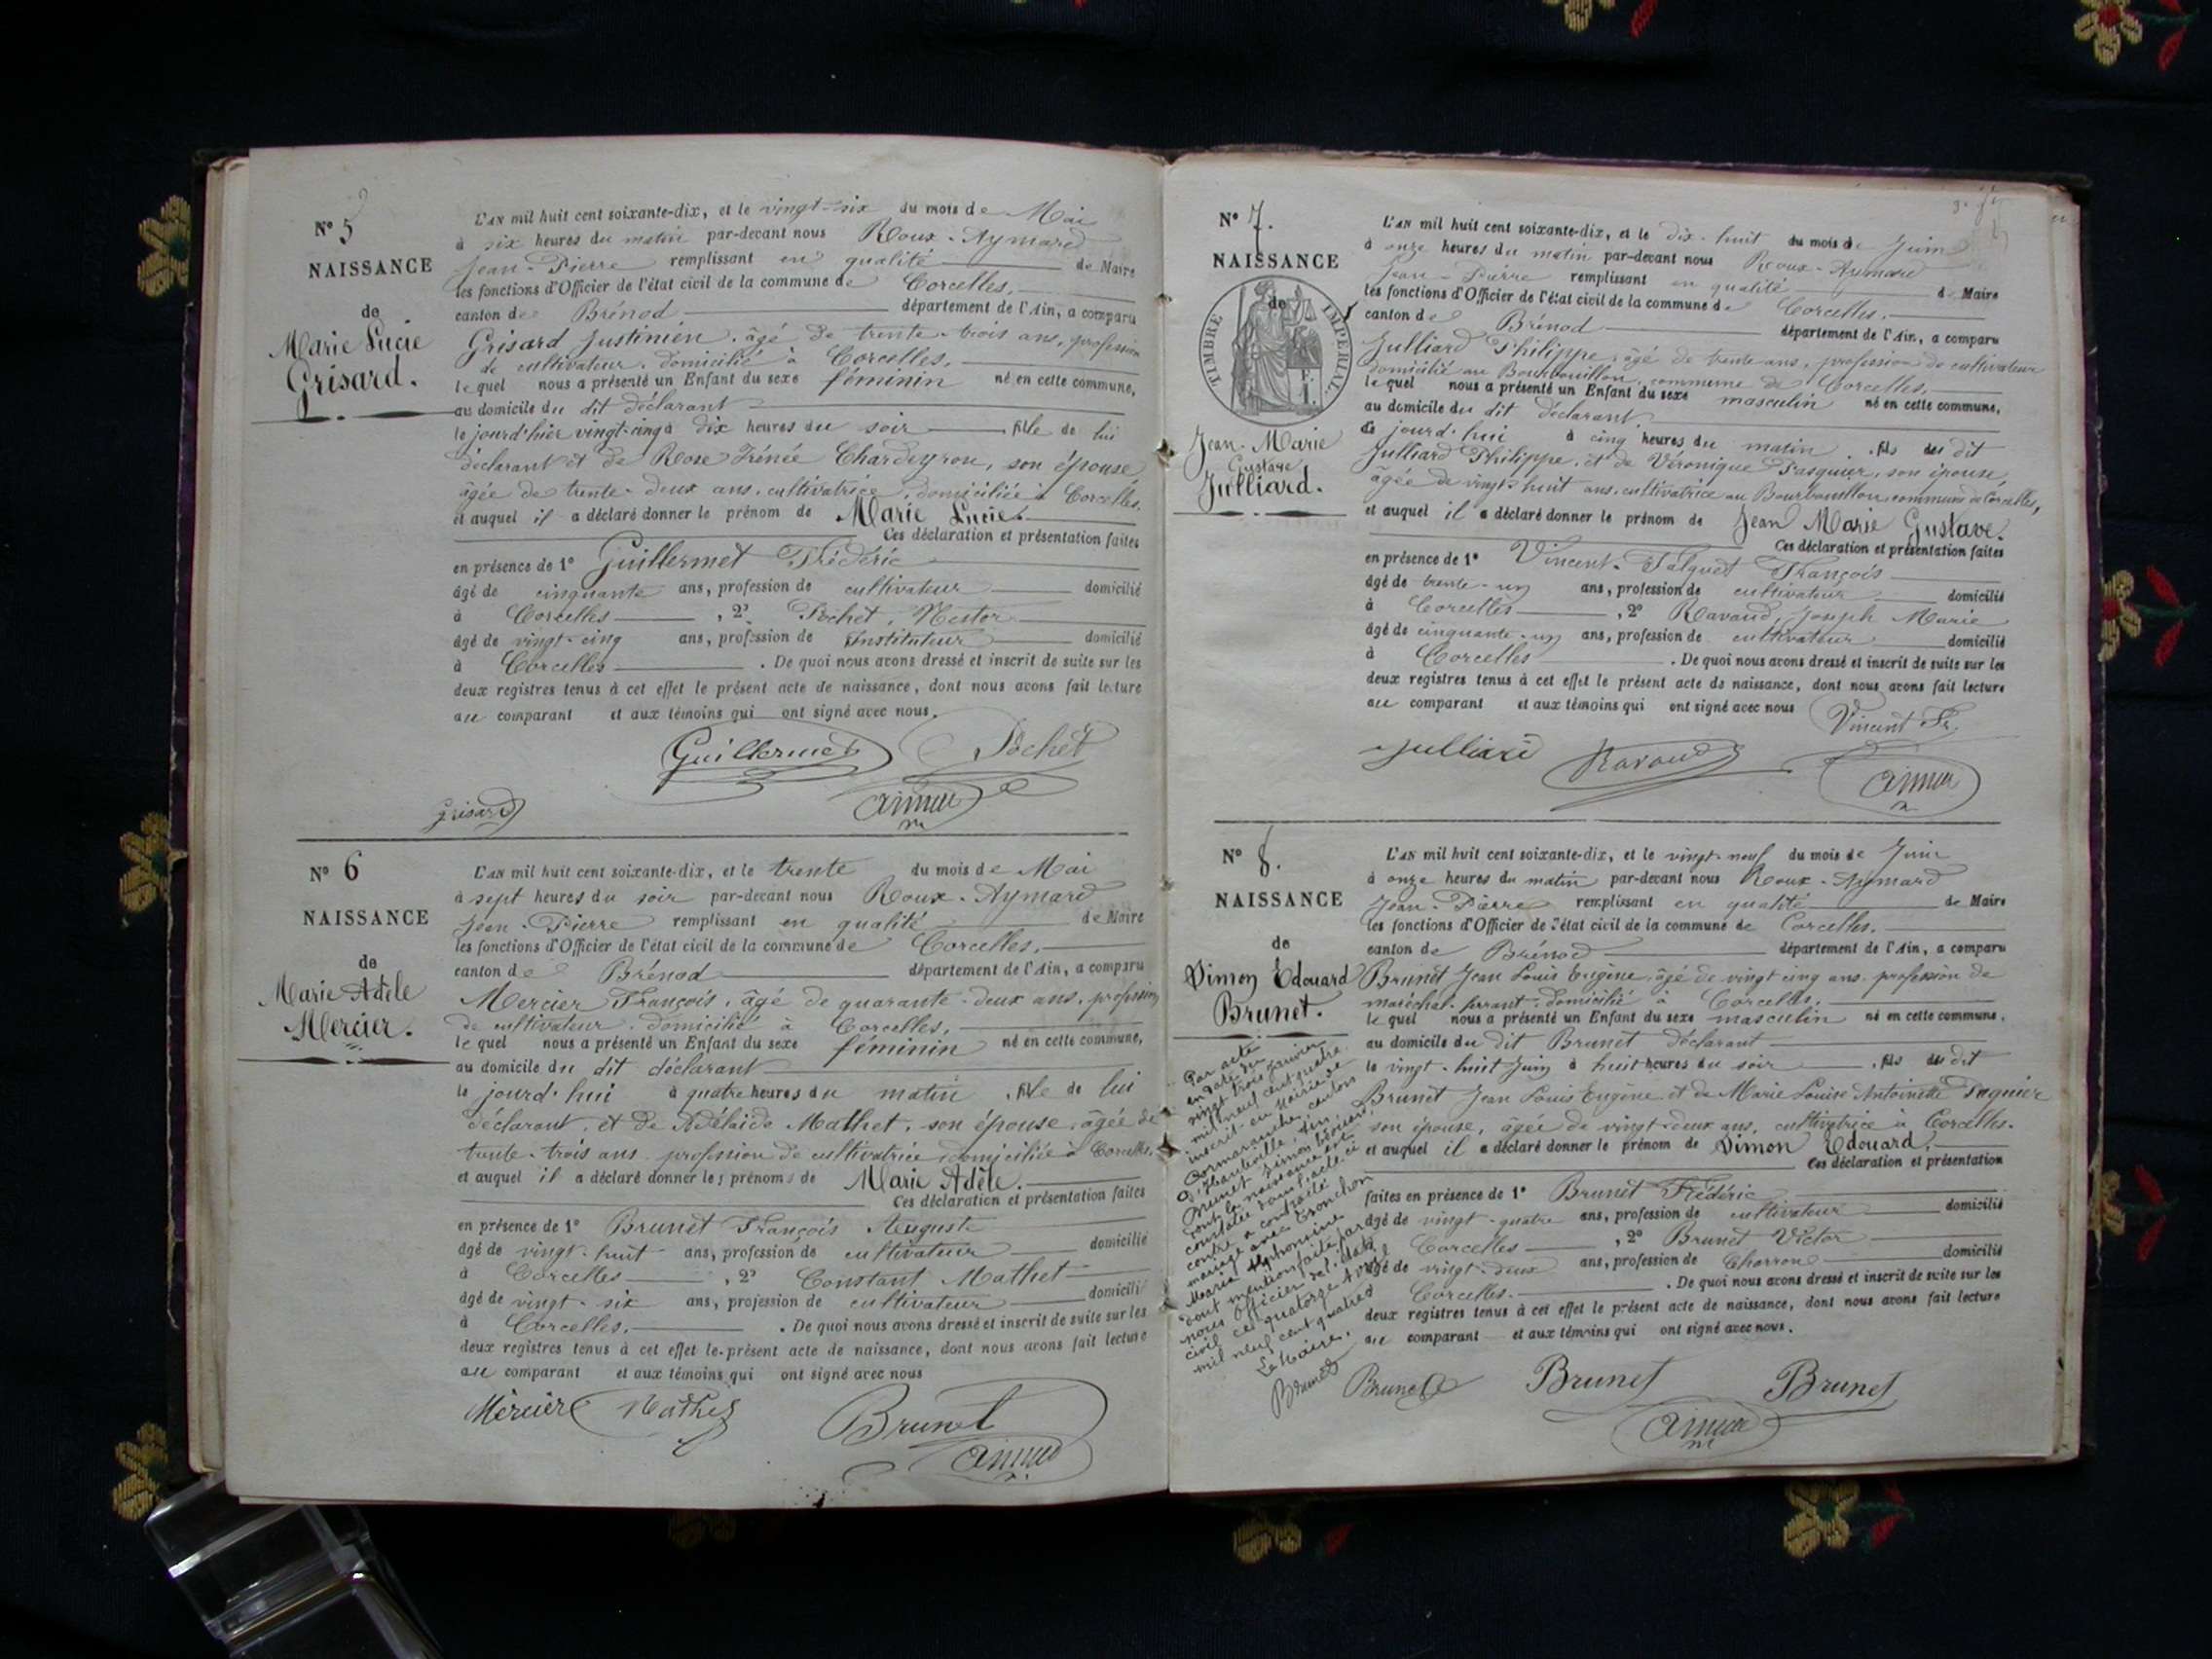 N° 5
NAISSANCE
de
Marie Lucie
Grisard.
L'AN mil huit cent soixante-dix, et le vingt-six du mois de Mai
à six heures du matin par-devant nous Roux-Aymard
Jean-Pierre remplissant en qualité de Maire
les fonctions d'Officier de l'état civil de la commune de Corcelles,
canton de Brénod département de l'Ain, a comparu
Grisard Justinien, âgé de trente-trois ans, profession
de cultivateur, domicilié à Corcelles,
lequel nous a présenté un Enfant du sexe féminin né en cette commune,
au domicile du dit déclarant
le jourd'hier vingt-cinq à dix heures du soir fille de lui
déclarant et de Rose Irénée Chardeyron, son épouse,
âgée de trente-deux ans, cultivatrice, domiciliée à Corcelles,
et auquel il a déclaré donner le prénom de Marie Lucie.
Ces déclaration et présentation faites
en présence de 1° Guillermet Frédéric
âgé de cinquante ans, profession de cultivateur domicilié
à Corcelles, 2° Pochet, Nestor
âgé de vingt-cinq ans, profession de Instituteur domicilié
à Corcelles. De quoi nous avons dressé et inscrit de suite sur les
deux registres tenus à cet effet le présent acte de naissance, dont nous avons fait lecture
au comparant et aux témoins qui ont signé avec nous.
Guillermet Pochet
Grisard
N° 6
NAISSANCE
de
Marie Adèle
Mercier.
L'AN mil huit cent soixante-dix, et le trente du mois de Mai
à sept heures du soir par-devant nous Roux-Aymard
Jean-Pierre remplissant en qualité de Maire
les fonctions d'Officier de l'état civil de la commune de Corcelles,
canton de Brénod département de l'Ain, a comparu
Mercier François, âgé de quarante-deux ans, profession
de cultivateur, domicilié à Corcelles,
lequel nous a présenté un Enfant du sexe féminin né en cette commune,
au domicile du dit déclarant
le jourd'hui à quatre heures du matin, fille de lui
déclarant, et de Adélaïde Mathet, son épouse, âgée de
trente-trois ans, profession de cultivatrice, domiciliée à Corcelles,
et auquel il a déclaré donner les prénoms de Marie Adèle.
Ces déclaration et présentation faites
en présence de 1° Brunet François Auguste
âgé de vingt-huit ans, profession de cultivateur domicilié
à Corcelles, 2° Constant Mathet
âgé de vingt-six ans, profession de cultivateur domicilié
à Corcelles. De quoi nous avons dressé et inscrit de suite sur les
deux registres tenus à cet effet le présent acte de naissance, dont nous avons fait lecture
au comparant et aux témoins qui ont signé avec nous
Mercier Mathet Brunet
N° 7.
NAISSANCE
de
TIMBRE IMPERIAL.
Jean-Marie
Gustave
Julliard.
L'AN mil huit cent soixante-dix, et le dix-huit du mois de Juin
à onze heures du matin par-devant nous Roux-Aymard
Jean-Pierre remplissant en qualité de Maire
les fonctions d'Officier de l'état civil de la commune de Corcelles,
canton de Brénod département de l'Ain, a comparu
Julliard Philippe, âgé de trente ans, profession de cultivateur
domicilié au Bourbouillon, commune de Corcelles,
lequel nous a présenté un Enfant du sexe masculin né en cette commune,
au domicile du dit déclarant
ce jourd'hui à cinq heures du matin, fils du dit
Julliard Philippe, et de Véronique Pasquier, son épouse,
âgée de vingt-huit ans, cultivatrice au Bourbouillon, commune de Corcelles,
et auquel il a déclaré donner le prénom de Jean Marie Gustave.
Ces déclaration et présentation faites
en présence de 1° Vincent-Falquet François
âgé de trente-un ans, profession de cultivateur domicilié
à Corcelles, 2° Ravaud, Joseph Marie
âgé de cinquante-un ans, profession de cultivateur domicilié
à Corcelles. De quoi nous avons dressé et inscrit de suite sur les
deux registres tenus à cet effet le présent acte de naissance, dont nous avons fait lecture
au comparant et aux témoins qui ont signé avec nous
Vincent Fr.
Julliard Ravaud
N° 8.
NAISSANCE
de
Simon Edouard
Brunet.
L'AN mil huit cent soixante-dix, et le vingt-neuf du mois de Juin
à onze heures du matin par-devant nous Roux-Aymard
Jean-Pierre remplissant en qualité de Maire
les fonctions d'Officier de l'état civil de la commune de Corcelles,
canton de Brénod département de l'Ain, a comparu
Brunet Jean Louis Eugène, âgé de vingt cinq ans, profession de
maréchal-ferrant, domicilié à Corcelles,
lequel nous a présenté un Enfant du sexe masculin né en cette commune,
au domicile du dit Brunet déclarant
le vingt-huit Juin à huit heures du soir, fils du dit
Brunet Jean Louis Eugène et de Marie Louise Antoinette
son épouse, âgée de vingt-deux ans, cultivatrice à Corcelles.
et auquel il a déclaré donner le prénom de Simon Edouard.
Ces déclaration et présentation
faites en présence de 1° Brunet Frédéric
âgé de vingt-quatre ans, profession de cultivateur domicilié
Corcelles, 2° Brunet Victor
âgé de vingt-deux ans, profession de Charron domicilié
Corcelles. De quoi nous avons dressé et inscrit de suite sur les
deux registres tenus à cet effet le présent acte de naissance, dont nous avons fait lecture
au comparant et aux témoins qui ont signé avec nous.
Brunet Brunet Brunet
Par acte
en date du
vingt trois janvier
mil neuf cent quatre
inscrit en Mairie de
Cormaranche, canton
d'Hauteville, Ain,
Brunet Simon Edouard,
dont la naissance est
constatée dans l'acte ci
contre a contracté
mariage avec Tronchon
Maria Alphonsine
dont mention faite par
nous Officier de l'état
civil ce quatorze Avril
mil neuf cent quatre
Le Maire,
Brunet